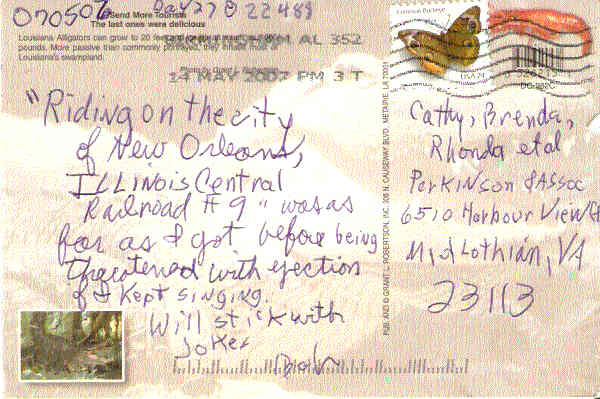 070502 Day 27 @ 22488
Send More Tourists
The last ones were delicious
Louisiana Alligators can grow to 20 feet
pounds. More passive than commonly portrayed, they inhabit most of
Louisiana's swampland.
AL 352
14 MAY 2007 PM 3 T
USA 24
"Riding on the city
of New Orleans,
ILLINOIS Central
Railroad # 9" was as
far as I got before being
threatened with ejection
if I kept singing.
Will stick with
Jokes
Bob
PUB. AND © GRANT L. ROBERTSON, INC. 306 N. CAUSEWAY BLVD. METAIRIE, LA 70001
Cathy, Brenda,
Rhonda et al
Perkinson & Assoc
6510 Harbour View Ct
Midlothian, VA
23113